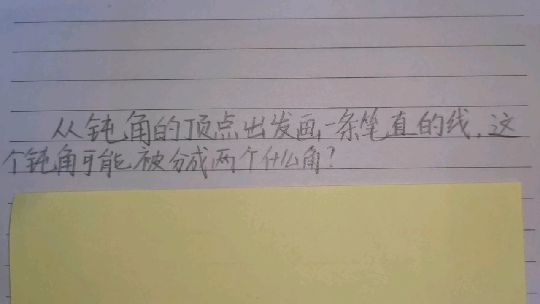 从钝角的顶点出发画一条笔直的线,这
个钝角可能被分成两个什么角?